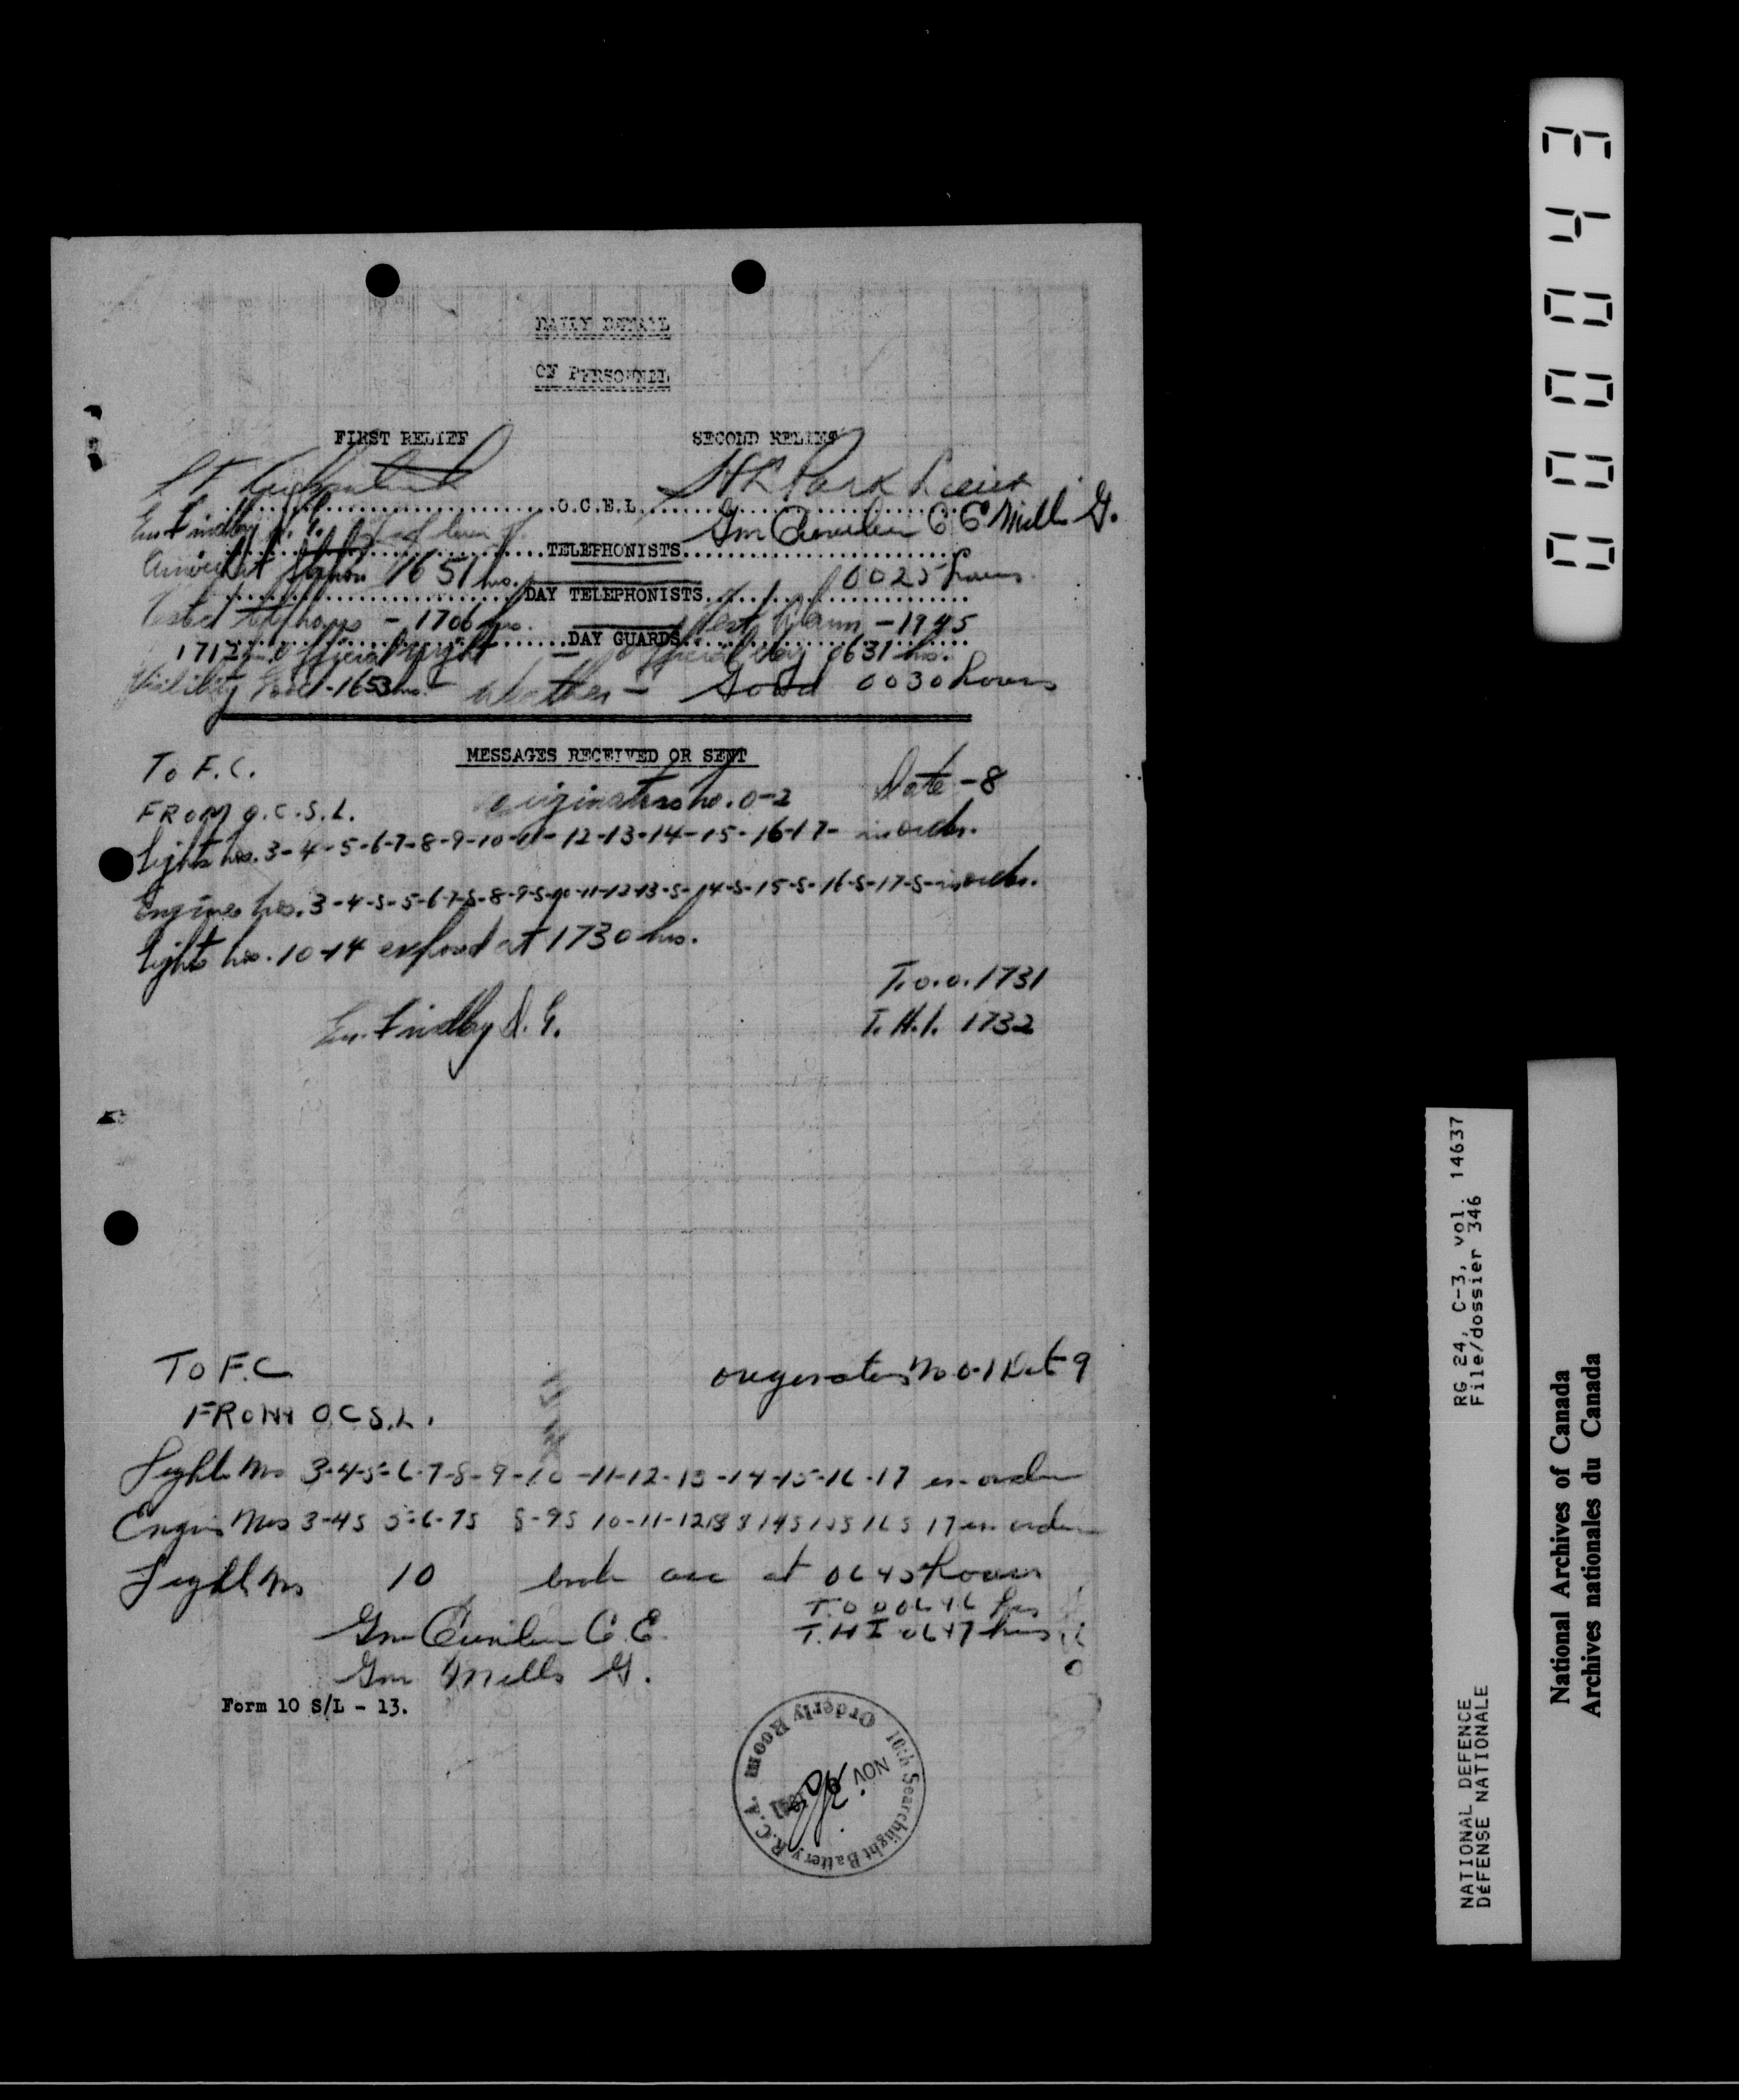 DAILY DETAIL
OF PERSONNEL
FIRST RELIEF SECOND RELIEF
Lt O.C.E.L. H L Park Lieut
Gnr. Findlay N. G. TELEPHONISTS Gnr C E Mills G.
Arrived at Station 1651 hrs. 0025 hours
DAY TELEPHONISTS
Tested telephones - 1706 hrs. Test Alarm - 1945
DAY GUARDS
1712 Official night - Official day 0631 hrs.
Visibility Good - 1653 hrs. Weather - Good 0030 hours
MESSAGES RECEIVED OR SENT
To F.C.
originators no. 0-2 Date - 8
FROM O.C.S.L.
Lights nos. 3-4-5-6-7-8-9-10-11-12-13-14-15-16-17- in order.
Engines nos. 3-4-S-5-6-7-S-8-9-S-10-11-12-13-S-14-S-15-S-16-S-17-S-in order.
Lights nos. 10-14 exposed at 1730 hrs.
T.O.O. 1731
Gnr. Findlay N. G.
T.H.I. 1732
TO F.C.
originators No 0-1 Date 9
FROM O.C S.L.
Lights Nos 3-4-5-6-7-8-9-10-11-12-13-14-15-16-17 in order
Engines Nos 3-4S 5-6-7S 8-9S 10-11-12 13 S 14S 15S 16S 17 in order
Light Nos 10 arc at 0645 hours
T.O O 0646 hrs
Gnr C.E.
T.H I 0647 hrs
Gnr Mills G.
Form 10 S/L - 13.
10th Searchlight Battery R.C.A. Orderly Room
NOV 9 1941
000043
RG 24, C-3, vol. 14637
File/dossier 346
NATIONAL DEFENCE
DÉFENSE NATIONALE
National Archives of Canada
Archives nationales du Canada